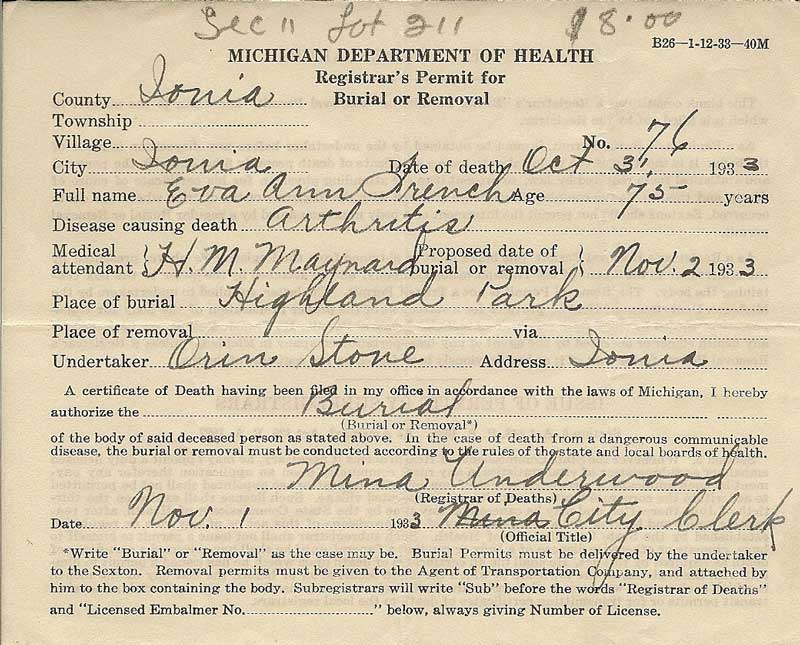 Sec 11 Lot 211 $8.00
B26—1-12-33—40M
MICHIGAN DEPARTMENT OF HEALTH
Registrar's Permit for
Burial or Removal
County Ionia
Township
Village
No. 76
City Ionia Date of death Oct 31, 1933
Full name Eva Ann French Age 75 years
Disease causing death Arthritis
Medical attendant } H. M. Maynard Proposed date of burial or removal } Nov. 2 1933
Place of burial Highland Park
Place of removal via
Undertaker Orin Stone Address Ionia
A certificate of Death having been filed in my office in accordance with the laws of Michigan, I hereby
authorize the Burial
(Burial or Removal*)
of the body of said deceased person as stated above. In the case of death from a dangerous communicable
disease, the burial or removal must be conducted according to the rules of the state and local boards of health.
Mina Underwood
(Registrar of Deaths)
Date Nov. 1 1933 Mina City Clerk
(Official Title)
*Write "Burial" or "Removal" as the case may be. Burial Permits must be delivered by the undertaker
to the Sexton. Removal permits must be given to the Agent of Transportation Company, and attached by
him to the box containing the body. Subregistrars will write "Sub" before the words "Registrar of Deaths"
and "Licensed Embalmer No. " below, always giving Number of License.